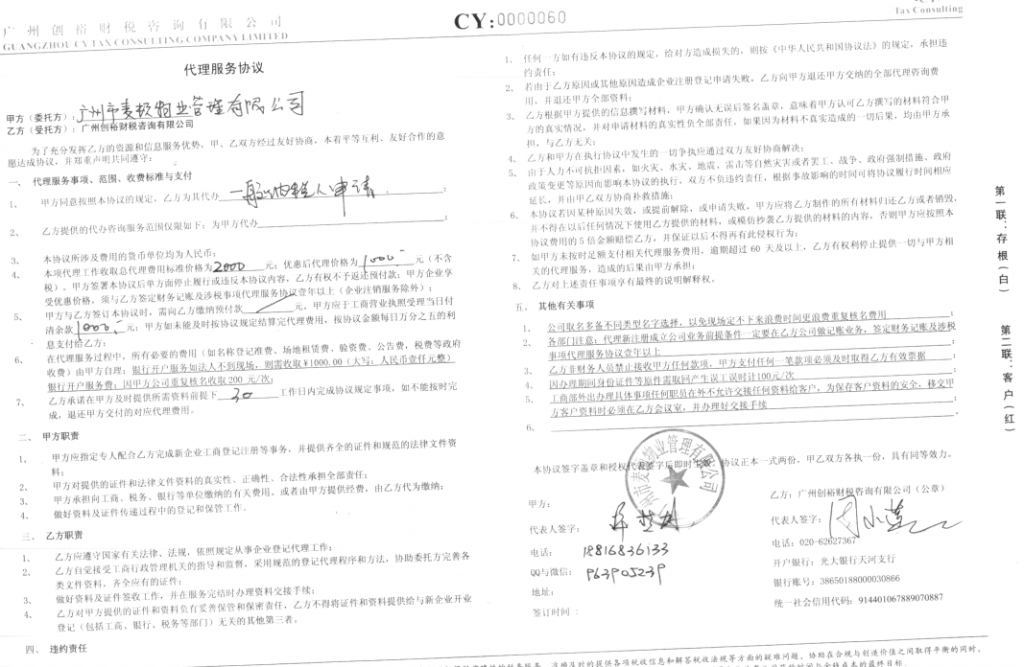 广州创裕财税咨询有限公司
GUANGZHOU CY TAX CONSULTING COMPANY LIMITED
CY:0000060
Tax Consulting
代理服务协议
甲方（委托方）：广州市麦极物业管理有限公司
乙方（受托方）：广州创裕财税咨询有限公司
为了充分发挥乙方的资源和信息服务优势，甲、乙双方经过友好协商，本着平等互利、友好合作的意
愿达成协议，并郑重声明共同遵守：
一、 代理服务事项、范围、收费标准与支付
1、 甲方同意按照本协议的规定，乙方为其代办 一般纳税人申请 ；
2、 乙方提供的代办咨询服务范围仅限如下：为甲方代办 ；
3、 本协议所涉及费用的货币单位均为人民币；
4、 本项代理工作收取总代理费用标准价格为2000 元；优惠后代理价格为1000 元（不含
税）。甲方签署本协议后单方面停止履行或违反本协议内容，乙方有权不予返还预付款；甲方企业享
受优惠价格，须与乙方签定财务记账及涉税事项代理服务协议壹年以上（企业注销服务除外）；
5、 甲方与乙方签订本协议时，需向乙方缴纳预付款 元，甲方应于工商营业执照受理当日付
清余款1000 元；甲方如未能及时按协议规定结算完代理费用，按协议金额每日万分之五的利
息支付给乙方；
6、 在代理服务过程中，所有必要的费用（如名称登记准费、场地租赁费、验资费、公告费，税费等政府
收费）由甲方自理；银行开户服务如法人不到现场，则需收取￥1000.00（大写：人民币壹仟元整）
银行开户服务费；因甲方公司重复核名收取200 元/次；
7、 乙方承诺在甲方及时提供所需资料前提下 30 工作日内完成协议规定事项，如不能按时完
成，退还甲方交付的对应代理费用。
二、 甲方职责
1、 甲方应指定专人配合乙方完成新企业工商登记注册等事务，并提供齐全的证件和规范的法律文件资
料；
2、 甲方对提供的证件和法律文件资料的真实性、正确性、合法性承担全部责任；
3、 甲方承担向工商、税务、银行等单位缴纳的有关费用。或者由甲方提供经费，由乙方代为缴纳；
4、 做好资料及证件传递过程中的登记和保管工作。
三、 乙方职责
1、 乙方应遵守国家有关法律、法规，依照规定从事企业登记代理工作；
2、 乙方自觉接受工商行政管理机关的指导和监督，采用规范的登记代理程序和方法，协助委托方完善各
类文件资料，齐全应有的证件；
3、 做好资料及证件签收工作，并在服务完结时办理资料交接手续；
4、 乙方对甲方提供的证件和资料负有妥善保管和保密责任，乙方不得将证件和资料提供给与新企业开业
登记（包括工商、银行、税务等部门）无关的其他第三者。
四、 违约责任
1、 任何一方如有违反本协议的规定，给对方造成损失的，则按《中华人民共和国协议法》的规定，承担违
约责任；
2、 若由于乙方原因或其他原因造成企业注册登记申请失败，乙方向甲方退还甲方交纳的全部代理咨询费
用，并退还甲方全部资料；
3、 乙方根据甲方提供的信息撰写材料，甲方确认无误后签名盖章，意味着甲方认可乙方撰写的材料符合甲
方的真实情况，并对申请材料的真实性负全部责任，如果因为材料不真实造成的一切后果，均由甲方承
担，与乙方无关；
4、 乙方和甲方在执行协议中发生的一切争执应通过双方友好协商解决；
5、 由于人力不可抗担因素，如火灾、水灾、地震、雷击等自然灾害或者罢工、战争、政府强制措施、政府
政策变更等原因而影响本协议的执行，双方不负违约责任，根据事故影响的时间可将协议履行时间相应
延长，并由甲乙双方协商补救措施；
6、 本协议若因某种原因失效，或提前解除，或申请失败，甲方应将乙方制作的所有材料归还乙方或者销毁，
并不得在以后任何情况下使用乙方提供的材料，或模仿抄袭乙方提供的材料的内容，否则甲方应按照本
协议费用的5 倍金额赔偿乙方，并保证以后不得再有此侵权行为；
7、 如甲方未按时足额支付相关代理服务费用，逾期超过 60 天及以上，乙方有权利停止提供一切与甲方相
关的代理服务，造成的后果由甲方承担；
8、 乙方对上述责任事项享有最终的说明解释权。
五、 其他有关事项
1、 公司取名多备不同类型名字选择，以免现场定不下来浪费时间更浪费重复核名费用
2、 各部门注意：代理新注册成立公司业务前提条件一定要在乙方公司做记账业务，签定财务记账及涉税
事项代理服务协议壹年以上
3、 乙方非财务人员禁止接收甲方任何款项，甲方支付任何一笔款项必须及时取得乙方有效票据
4、 因办理期间身份证件等原件需取回产生误工误时计100元/次
5、 工商部外出办理具体事项任何职员在外不允许交接任何资料给客户，为保存客户资料的安全，移交甲
方客户资料时必须在乙方会议室，并办理好交接手续
6、
本协议签字盖章和授权代表签字后即时生效，协议正本一式两份，甲乙双方各执一份，具有同等效力。
甲方：
代表人签字：
电话： 18816836133
QQ与微信： 963905239
地址：
签订时间：
乙方：广州创裕财税咨询有限公司（公章）
代表人签字：周小莲
电话：020-62627367
开户银行：光大银行天河支行
银行账号：38650188000030866
统一社会信用代码：914401067889070887
第一联：存根（白）
第二联：客户（红）